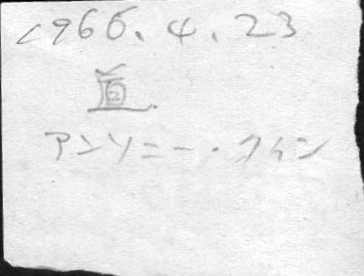 1966.4.23
道.
アンソニー・クイン